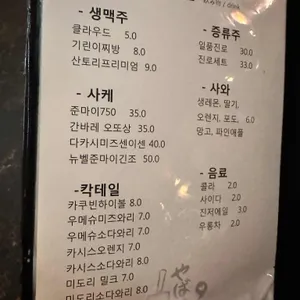 飲み物 / drink
- 생맥주
클라우드 5.0
기린이찌방 8.0
산토리프리미엄 9.0
- 사케
준마이750 35.0
간바레 오또상 35.0
다카시미즈센이센 40.0
뉴벨준마이긴조 50.0
-칵테일
카쿠빈하이볼 8.0
우메슈미즈와리 7.0
우메슈소다와리 7.0
카시스오렌지 7.0
카시스소다와리 8.0
미도리 밀크 7.0
미도리소다와리 8.0
- 증류주
일품진로 30.0
진로세트 33.0
- 사와
생레몬, 딸기,
오렌지, 포도, 6.0
망고, 파인애플
- 음료
콜라 2.0
사이다 2.0
진저에일 3.0
우롱차 2.0